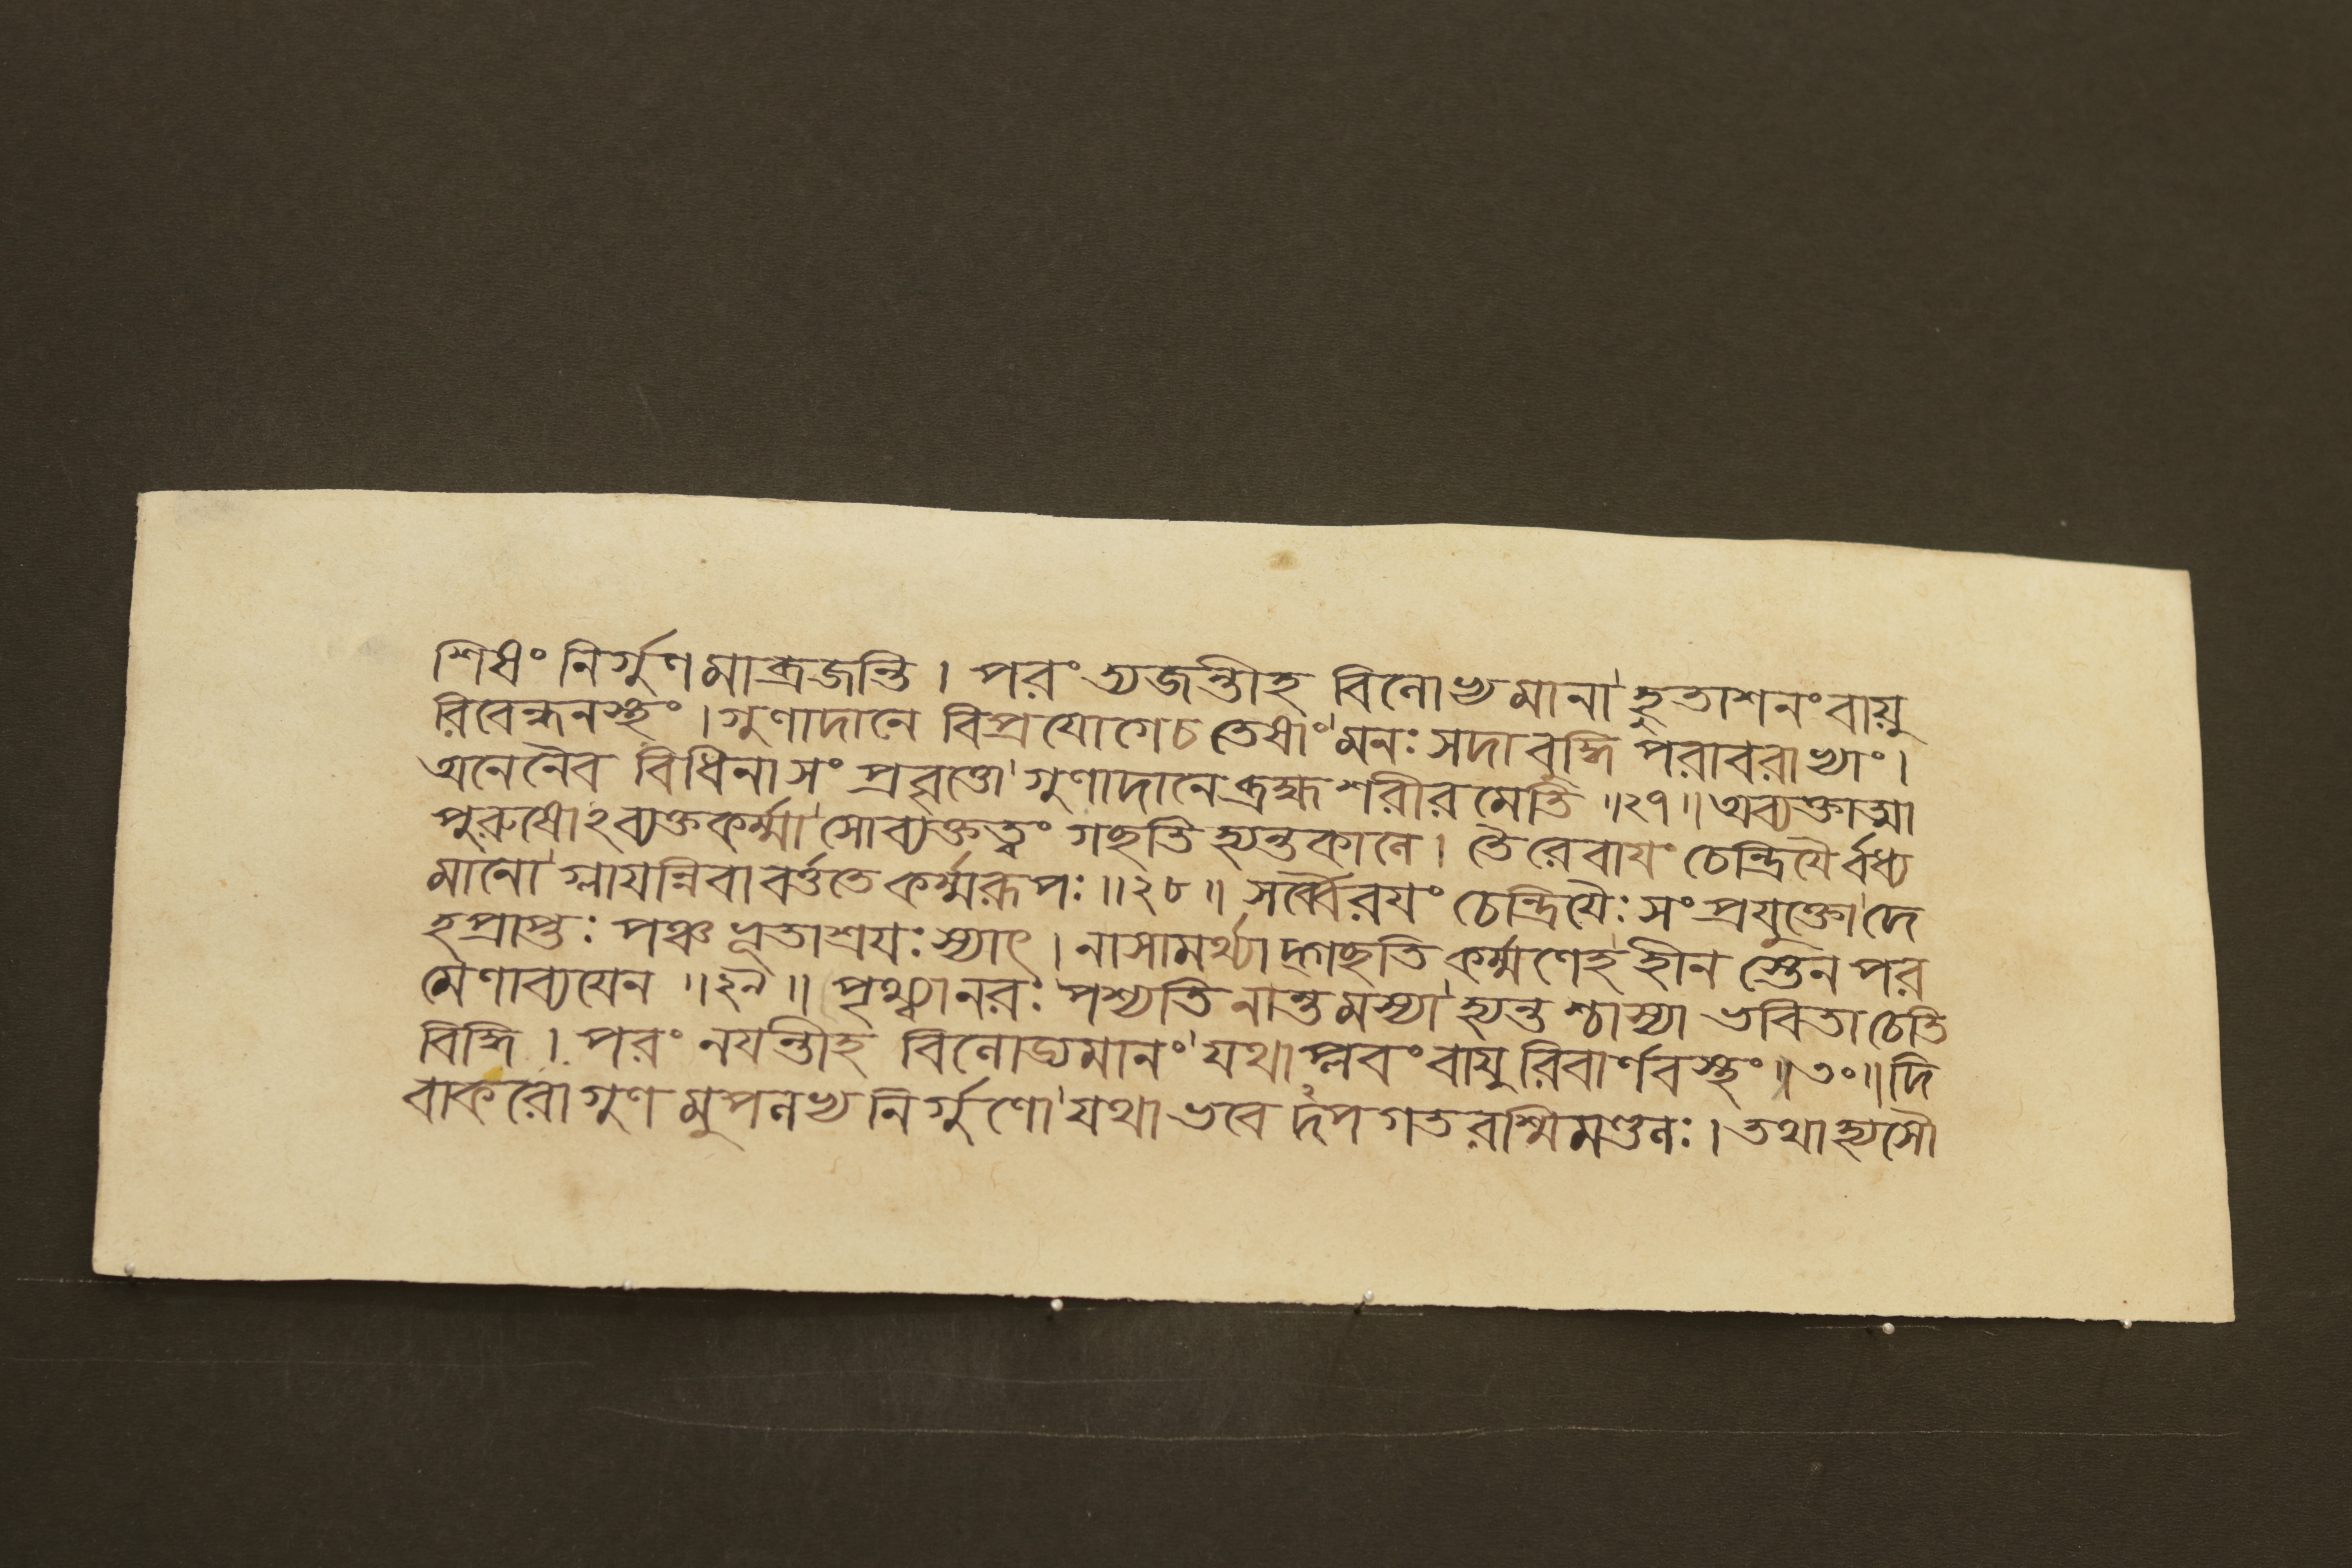 শিষং নির্গুণমাব্রজন্তি । পরং ত্যজন্তীহ বিলোড্যমানা হুতাশনং বায়ু
রিবেন্ধনস্থং । গুণাদানে বিপ্রযোগে চ তেষাং মনঃ সদা বুদ্ধি পরাবরাভ্যাং ।
অনেনৈব বিধিনা সং প্রবৃত্তো গুণাদানে ব্রহ্ম শরীরমেতি ॥২৭॥ অব্যক্তাত্মা
পুরুষোঽব্যক্তকর্ম্মা সোব্যক্তত্বং গছতি হ্যন্তকালে । তৈরেবাযং চেন্দ্রিযৈর্বধ্য
মানো গ্লাযন্নিবাবর্ত্ততে কর্ম্মরূপঃ ॥২৮॥ সর্ব্বৈরযং চেন্দ্রিযৈঃ সং প্রযুক্তো দে
হপ্রাপ্তঃ পঞ্চ ভূতাশ্রযঃ স্যাৎ । নাসামর্থ্যাদ্গছতি কর্ম্মণেহ হীনস্তেন পর
মেণাব্যযেন ॥২৯॥ পৃথ্ব্যা নরঃ পশ্যতি নান্তমস্যা হ্যন্তশ্চাস্যা ভবিতা চেতি
বিদ্ধি । পরং নযন্তীহ বিলোড্যমানং যথা প্লবং বাযুরিবার্ণবস্থং ॥৩০॥ দি
বাকরো গুণমুপলভ্য নির্গুণো যথা ভবেদপগতরশ্মিমণ্ডলঃ । তথা হ্যসৌ